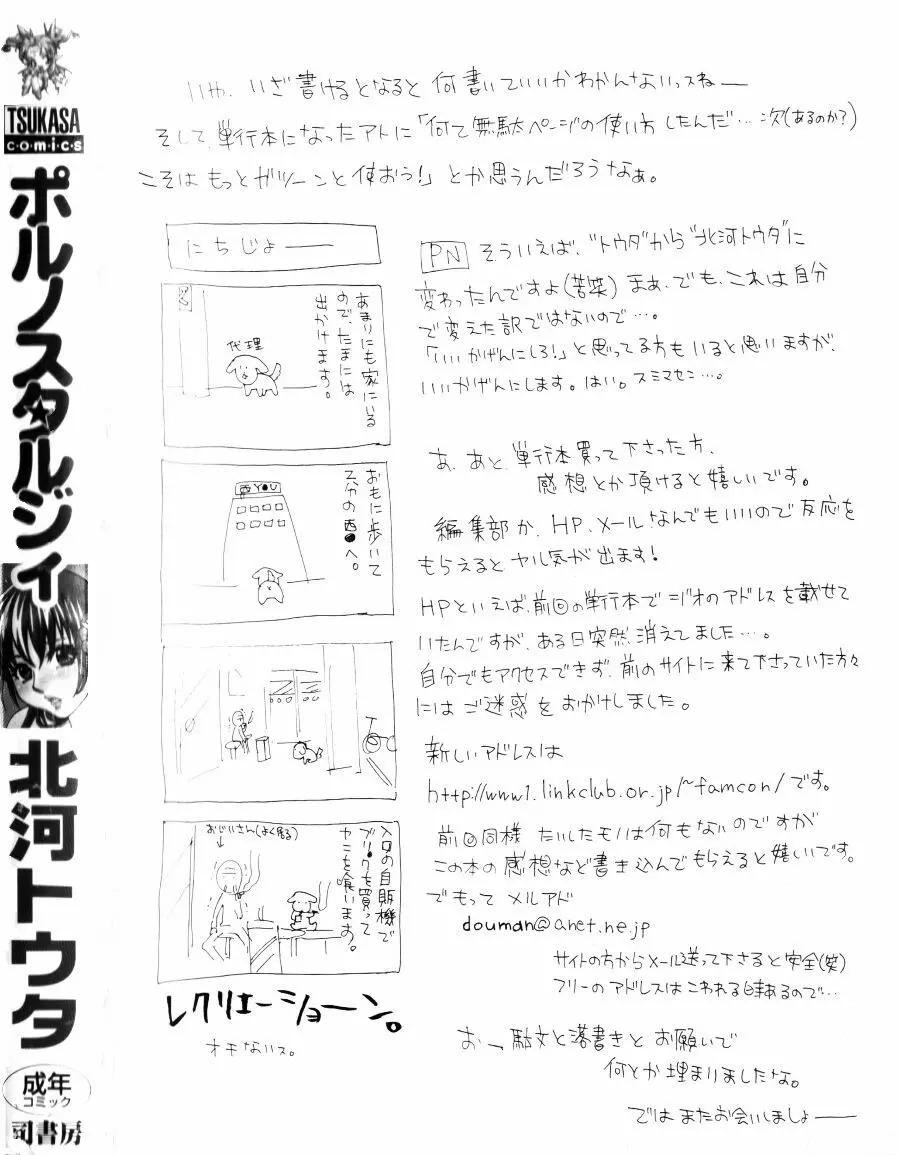 TSUKASA
COMICS
ポルノスタルジィ
北河トウタ
成年
コミック
司書房
いや、いざ書けるとなると何書いていいかわかんないっスねー
そして単行本になったアトに「何て無駄ページの使い方したんだ…次(あるのか?)
こそはもっとガツーンと使おう!」とか思うんだろうなぁ。
にちじょー
あまりにも家にいる
ので、たまには
出かけます。
代理
おもに歩いて
又分の西●へ。
西YOU
おじいさん(よく居る)
入口の自販機で
ブリ●クを買って
ヤニを喰います。
レクリエーショーン。
オチないス。
PN そういえば、"トウタ"から"北河トウタ"に
変わったんですよ(苦笑)まぁ、でも、これは自分
で変えた訳ではないので…。
「いいかげんにしろ!」と思ってる方もいると思いますが、
いいかげんにします。はい。スミマセン…。
あ、あと、単行本買って下さった方、
感想とか頂けると嬉しいです。
編集部か、HP、メールなんでもいいので反応を
もらえるとヤル気が出ます!
HPといえば、前回の単行本でジオのアドレスを載せて
いたんですが、ある日突然消えてました…。
自分でもアクセスできず、前のサイトに来て下さっていた方々
にはご迷惑をおかけしました。
新しいアドレスは
http://www1.linkclub.or.jp/~famcon/です。
前回同様たいしたモノは何もないのですが
この本の感想など書き込んでもらえると嬉しいです。
でもって メルアド
douman@anet.ne.jp
サイトの方からメール送って下さると安全(笑)
フリーのアドレスはこわれる時あるので…
おー、駄文と落書きとお願いで
何とか埋まりましたな。
ではまたお会いしましょー